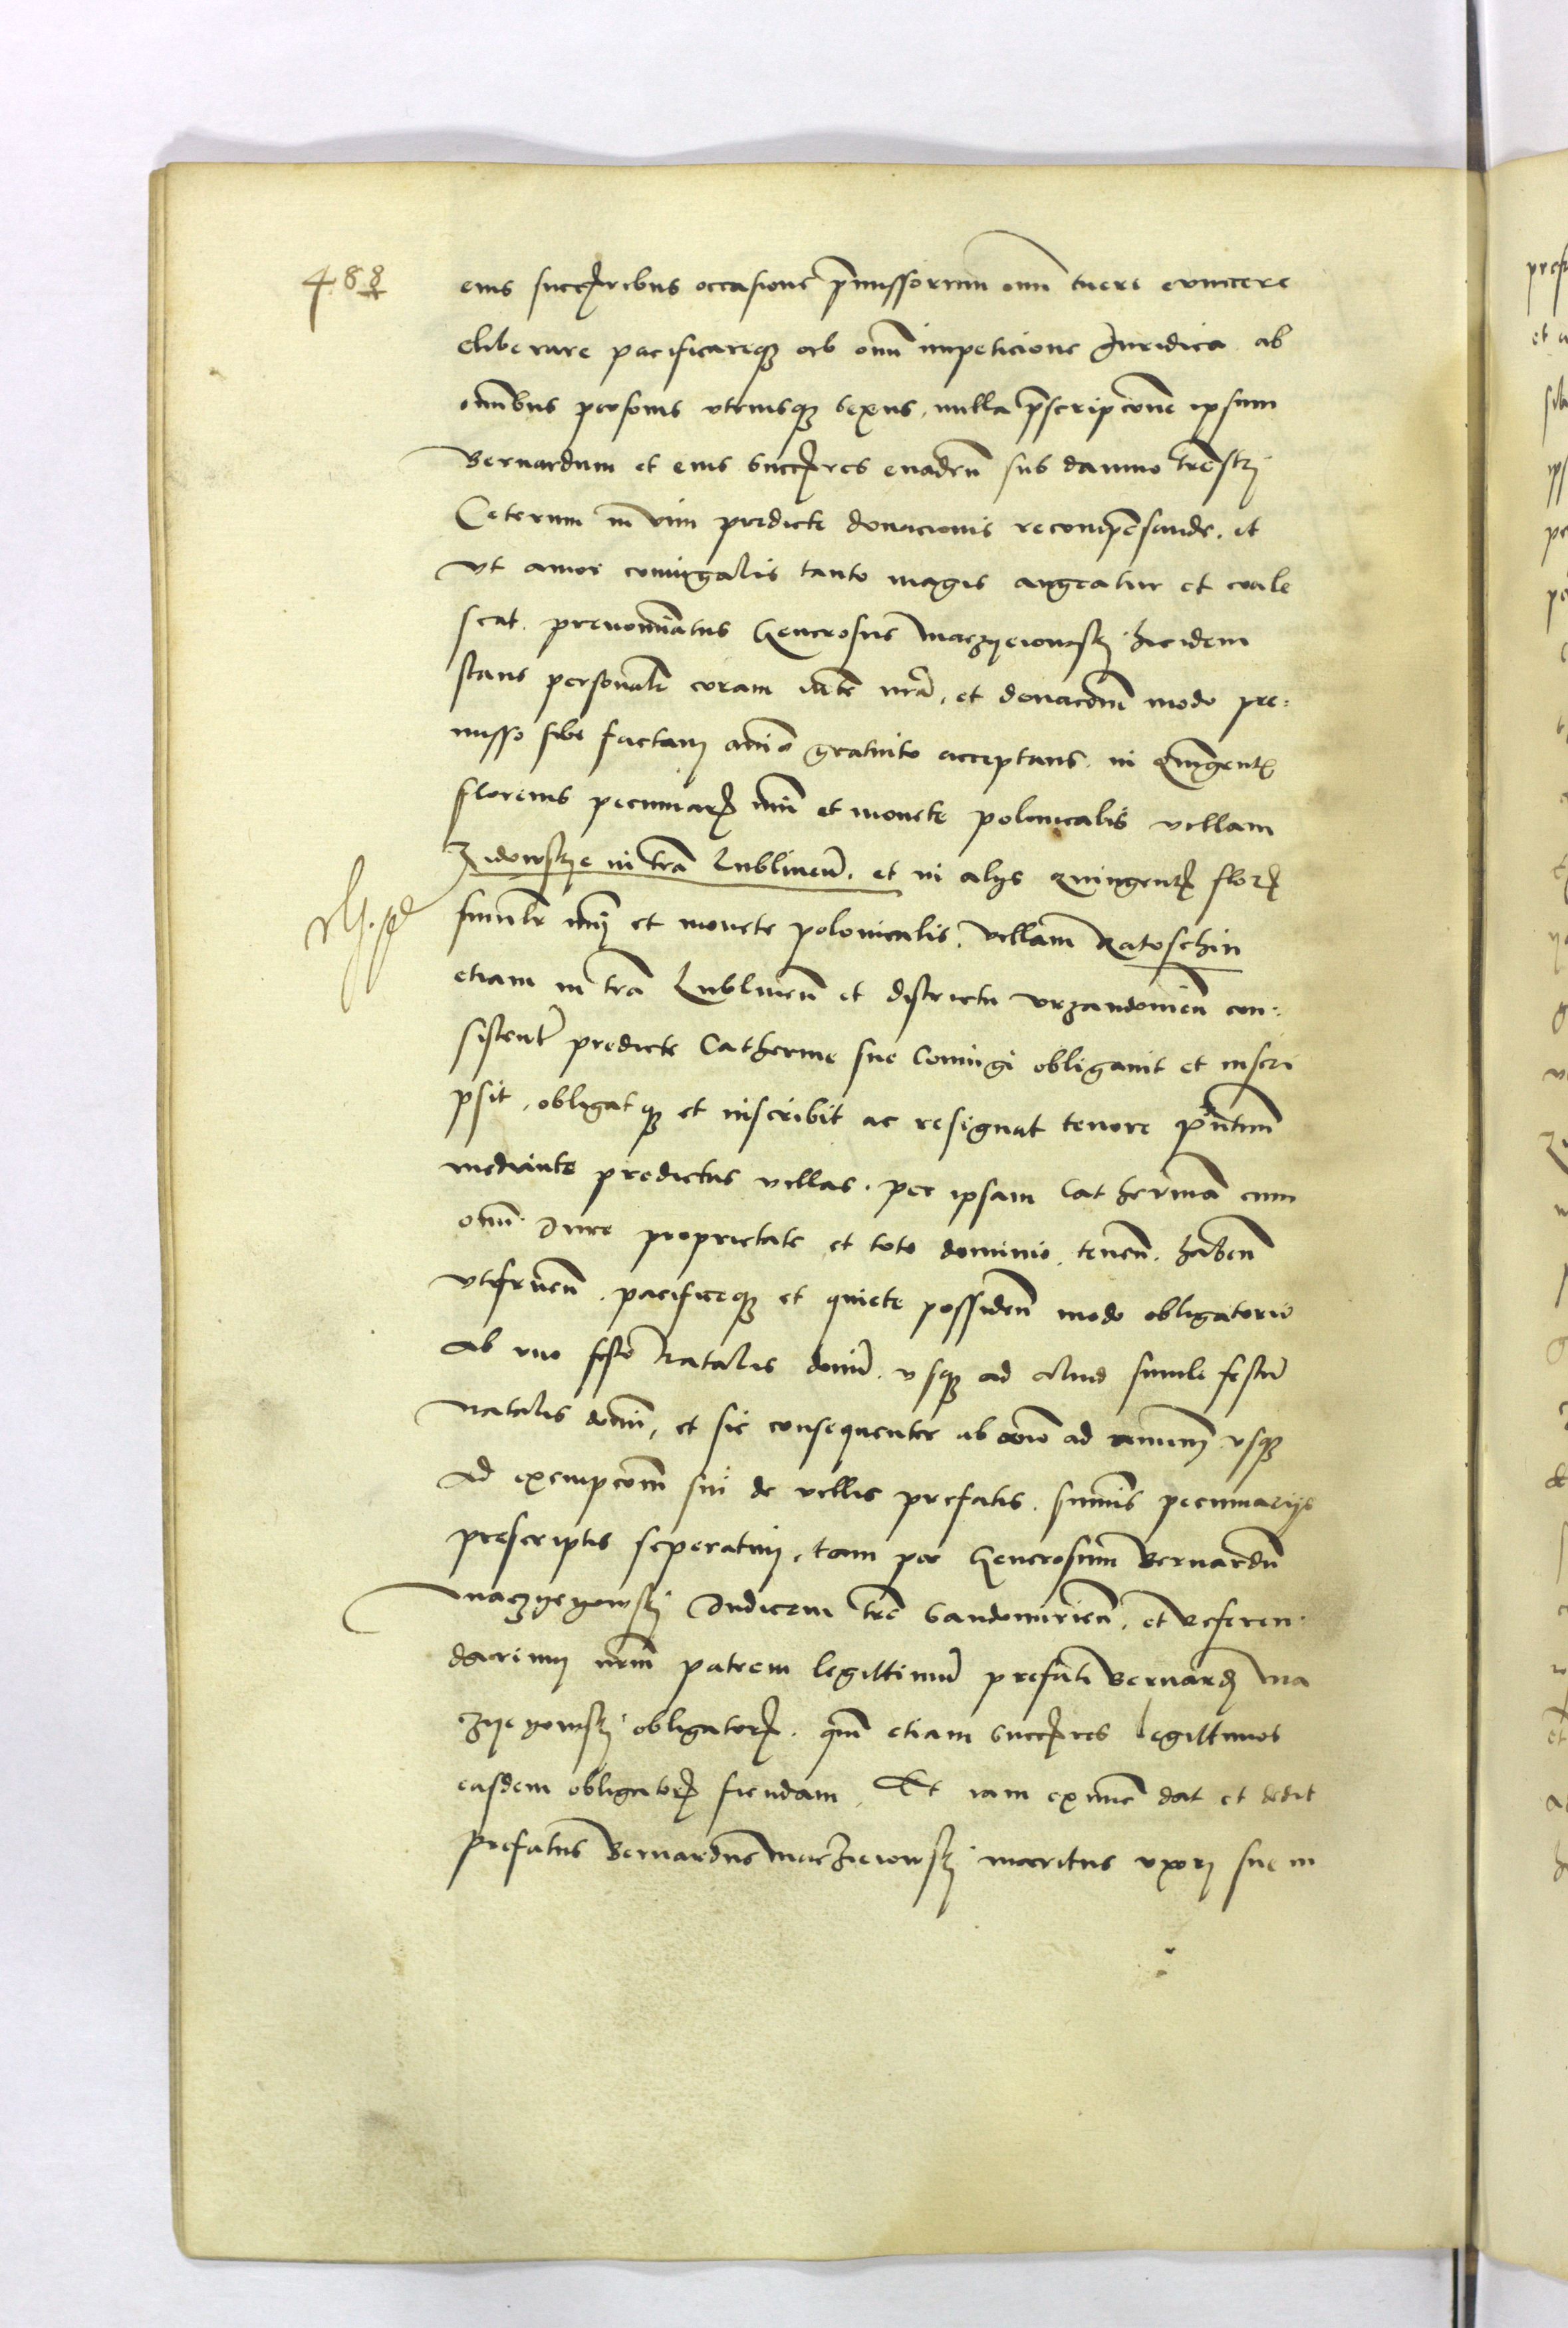 488
eius succ̄ribus occasione p̄missorum om̄i tueri evincere
eliberare pacificareqz ab om̄i impeticione Juridica ab
om̄ibus personis utriusqz sexus, nulla p̄scripcione ipsum
Bernardum et eius Succ̄res evaden̄ sub damno
Ceterum in vim predicte donacionis recompensande, et
Ut amor coniugalis tanto magis augeatur et coale
scat. prenominatus Generosus Maczyeiowsky ibidem
stans personalr̄ coram m̄te nr̄a, et donacōm modo pre-
misso sibi factam animo gratuito acceptans in Quingent̄
florenis pecuniarꝫ nūi et monete polonicalis villam
Zidowskye in tr̄a Lublinen̄. et in alys quingentꝫ florꝫ
similr̄ nūi et monete polonicalis. villam Ratoschin
etiam in tr̄a Lublinen̄ et districtu Urzandowien̄ con-
sisten̄ predicte Catherine sue Coniugi obligavit et inscri
psit, obligatqz et inscribit ac resignat tenore pn̄tium
mediante predictas villas. per ipsam Catherinā cum
om̄i Jure proprietate et toto dominio, tenen̄. haben̄
Utifruen̄. pacificeqz et quiete possiden̄ modo obligatorio
Ab uno festo Natalis domi. usqz ad aliud simile festum
Natalis domī, et sic consequenter ab anno ad annum usqz
Ad exempcōm sui de villis prefatis. summis pecuniarys
prescriptis seperatim, tam per Generosum Bernardū
Maczyeyowsky Judicem tr̄e Sandomirien̄, et Referen-
darium nr̄m patrem legittimum prefati Bernardꝫ Ma
czyeyowsky obligatorꝫ. q̄m etiam Succ̄res legittimos
eiusdem obligatorꝫ fiendam. Et iam exnunc dat et dedit
prefatus Bernardus Maczieiowsky maritus uxori sue in